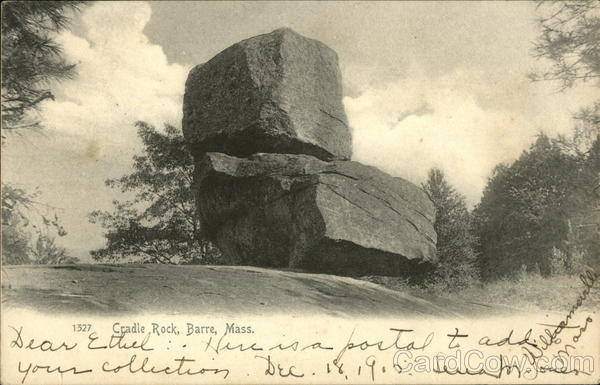 1327 Cradle Rock, Barre, Mass.
Dear Ethel: Here is a postal to add to
your collection Dec. 18, 191
CardCow.com
Mass.